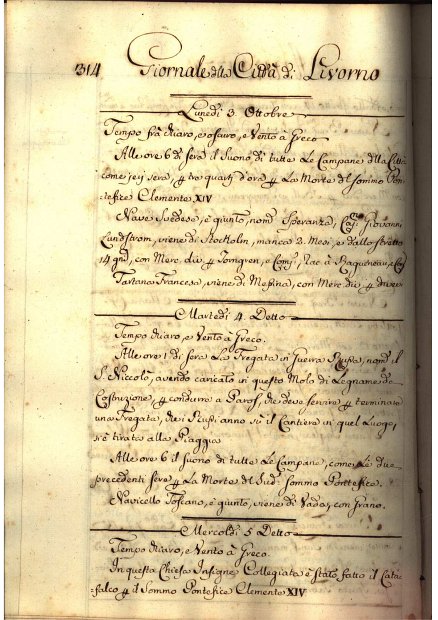 314 Giornale della Città di Livorno
Lunedi 3. Ottobre
Tempo frà chiaro, e oscuro, e Vento à Greco
Alle ore 6 di sera il Suono di tutte Le Campane della Città
come jerj sera, p tre quartj d'ora p La Morte del Sommo Pon-
tefice Clemente XIV
Nave Svedese, è giunto, nom: Speranza, Giovanni
Lundstrom, viene di Stockolm, manca 2. Mesi, e dallo stretto
14 gni, con Merc. div. p Tomgren, e Comp:, Lac à Bagueneau, e
Tartana Francesa, viene di Messina, con Merc. div. p Diversi
Martedi 4. Detto
Tempo chiaro, e Vento à Greco.
Alle ore 1 di sera La Fregata in Guerra Russa, nom: il
S. Niccolò, avendo caricato in questo Molo di Legname da
Costruzione, p condurre a Paros, che deve servire p terminare
una Fregata, che i Russi anno sù il Cantiere in quel Luogo,
si è tirata alla Piaggia
Alle ore 6 il suono di tutte Le Campane, come Le due
precedenti sere p La Morte del Sud: Sommo Pontefice.
Navicello Toscano, è giunto, viene di Vada, con Grano.
Mercoldi 5 Detto
Tempo chiaro, e Vento à Greco.
In questa Chiesa Insigne Collegiata è stato fatto il Cata-
falco p il Sommo Pontefice Clemente XIV